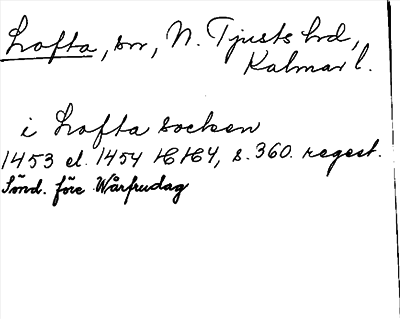 Lofta, sn, N. Tjusts hd,
Kalmar l.
i Lofta socken
1453 el. 1454 HH4, s. 360. regest.
Sönd. före Wårfrudag